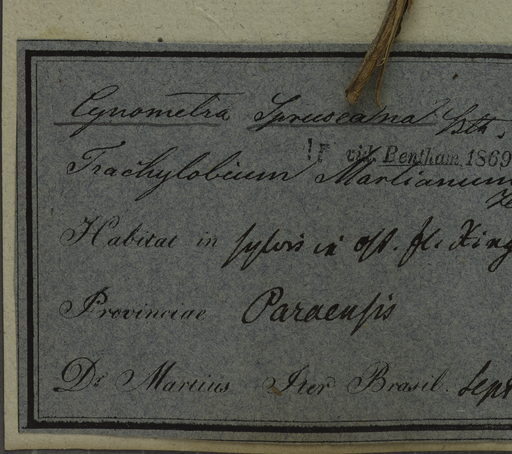 Cynometra Spruceana Bth.
!? vid. Bentham 1869
Trachylobium Martianum
Habitat in sylvis in ost. fl. Xing
Provinciae Paraensis
Dr Martius Iter Brasil. Sept